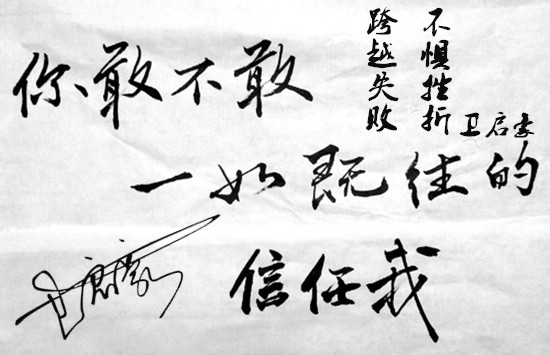 你敢不敢
一如既往的
信任我
不惧挫折
跨越失败
卫启豪